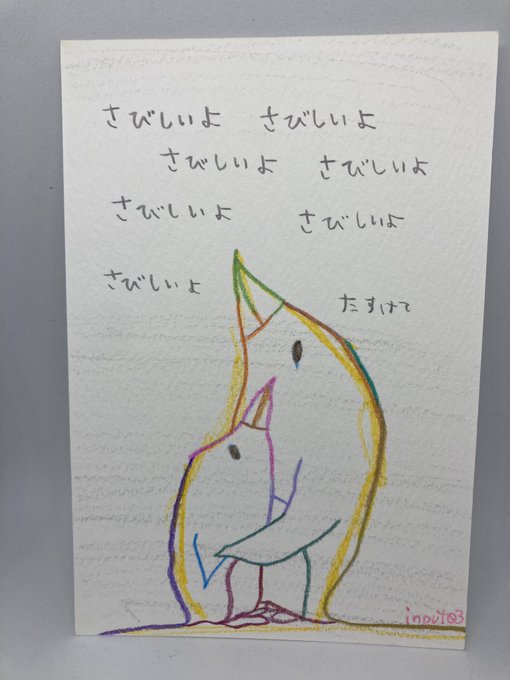 さびしいよ さびしいよ
さびしいよ さびしいよ
さびしいよ さびしいよ
さびしいよ たすけて